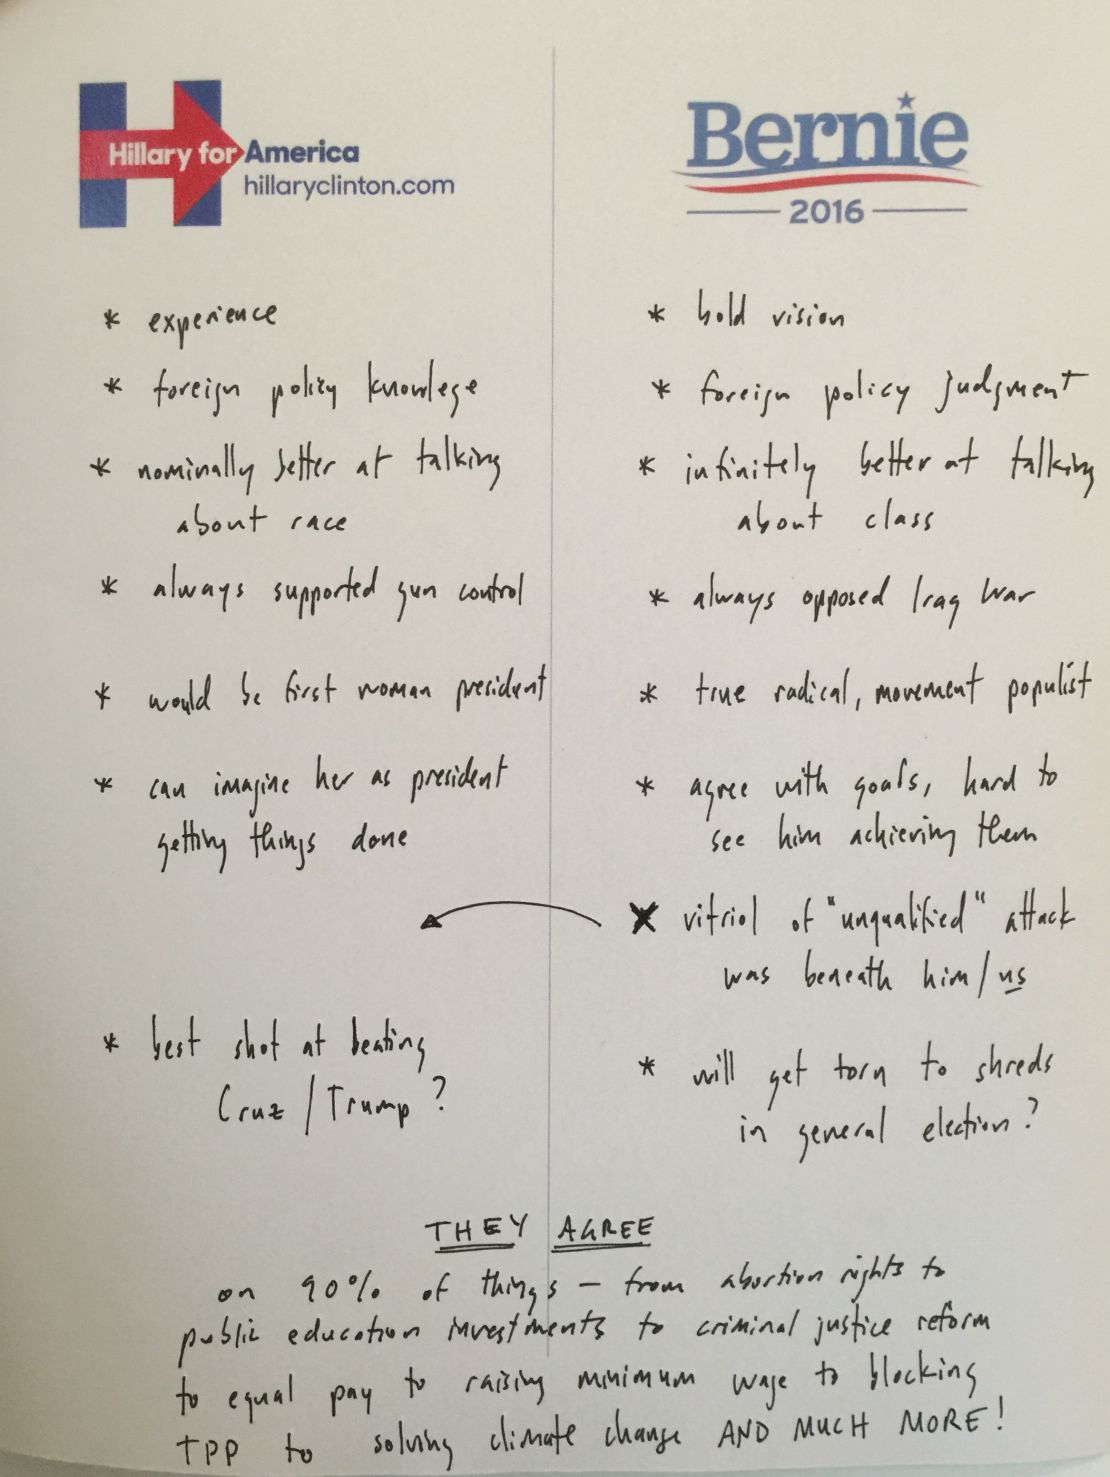 Hillary for America
hillaryclinton.com
* experience
* foreign policy knowlege
* nominally better at talking
about race
* always supported gun control
* would be first woman president
* can imagine her as president
getting things done
* best shot at beating
Cruz / Trump?
Bernie
2016
* bold vision
* foreign policy judgment
* infinitely better at talking
about class
* always opposed Iraq War
* true radical, movement populist
* agree with goals, hard to
see him achieving them
* vitriol of "unqualified" attack
was beneath him/us
* will get torn to shreds
in general election?
THEY AGREE
on 90% of things — from abortion rights to
public education investments to criminal justice reform
to equal pay to raising minimum wage to blocking
TPP to solving climate change AND MUCH MORE!